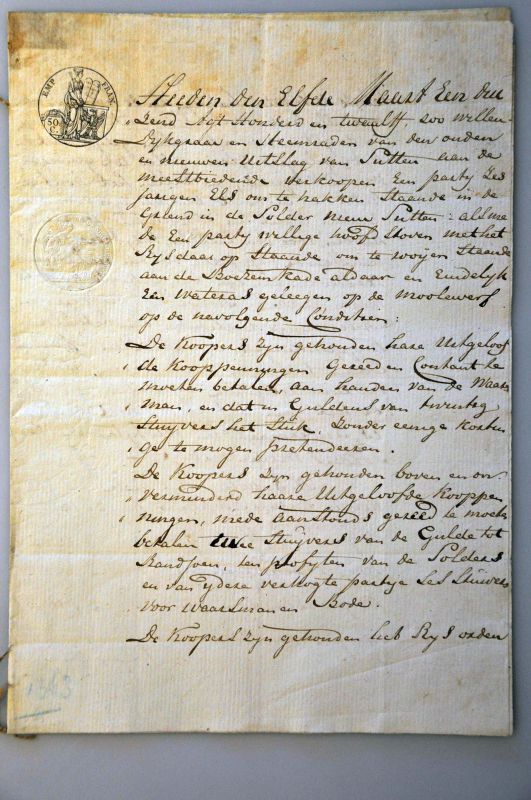 EMP FRAN
50 C
Heeden den Elfde Maart Een Duÿ
Zend Agt Honderd en twaelff zoo willen
Dijkgraaf en Heemraden van den ouden
en nieuwen Uitslag van Putten aan de
meestbiedende verkoopen Een party Zes
jarigen Els om te hakken Staande in de
in de Polder nieuw Putten: alsme
de Een party wellige hooft Stoven met het
Rys daar op Staande om te rooijen Staande
aan de Boezemkade aldaar en Eindelyk
Een Wateras geleegen op de Moolewerf
op de navolgende Conditien:
De Koopers zyn gehouden haare Uitgeloof
de Kooppenningen Gereed en Contant te
moeten betalen, aan handen van de Waars
man, en dat in Guldens van twintig
Stuyvers het Stuk, Zonder eenige kortin
ge te mogen pretendeeren.
De Koopers zyn gehouden boven en on
vermindert haare Uitgeloofde Kooppen
ningen, mede aanstonds gereed te moete
betalen twee Stuyvers van de Gulde tot
Randsoen, ten profyten van de Polders
en van ydere verkogte partye Ses Stuivers
voor Waarsman en Bode.
De Koopers zyn gehouden het Rys orden
1363